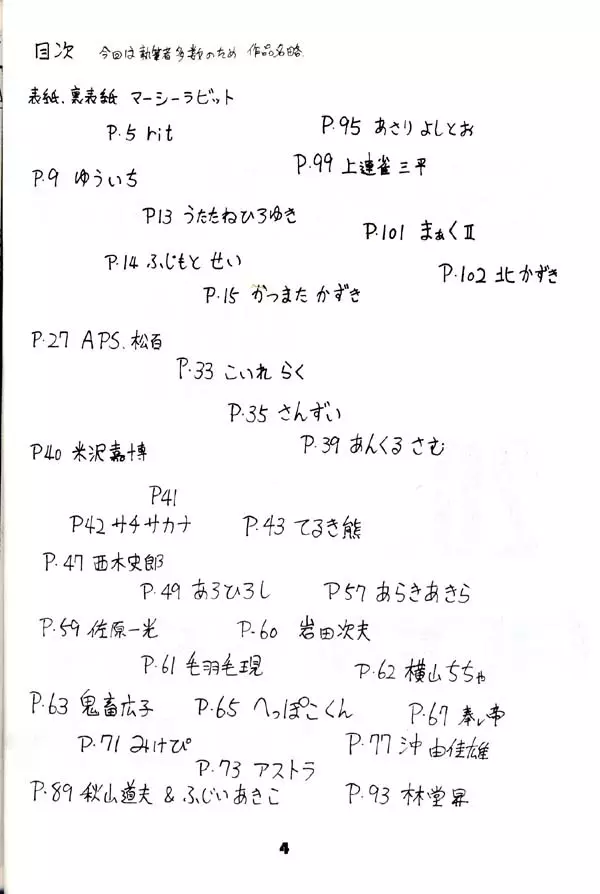 目次 今回は執筆者多数のため 作品名略.
表紙.裏表紙 マーシーラビット
P.5 rit
P.95 あさりよしとお
P.99 上連雀三平
P.9 ゆういち
P13 うたたねひろゆき
P.101 まぁくⅡ
P.14 ふじもと せい
P.102 北かずき
P.15 かつまた かずき
P.27 APS.松百
P.33 こいれ らく
P.35 さんずい
P.39 あんくる さむ
P40 米沢嘉博
P41
P42 サチサカナ P.43 てるき熊
P.47 西木史郎
P.49 あろひろし P57 あらきあきら
P.59 佐原一光 P.60 岩田次夫
P.61 毛羽毛現 P.62 横山ちちゃ
P.63 鬼畜広子 P.65 へっぽこくん P.67
P.71 みけぴ P.77 沖由佳雄
P.73 アストラ
P.89 秋山道夫 & ふじいあきこ P.93 林堂昇
4